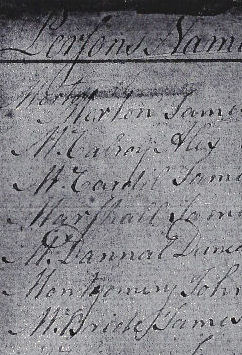 Persons Name
Morton Jame
McCalrop Alex
McCardil Jame
Marshall Jame
McDannal Dunc
Montgomery John
McBride James